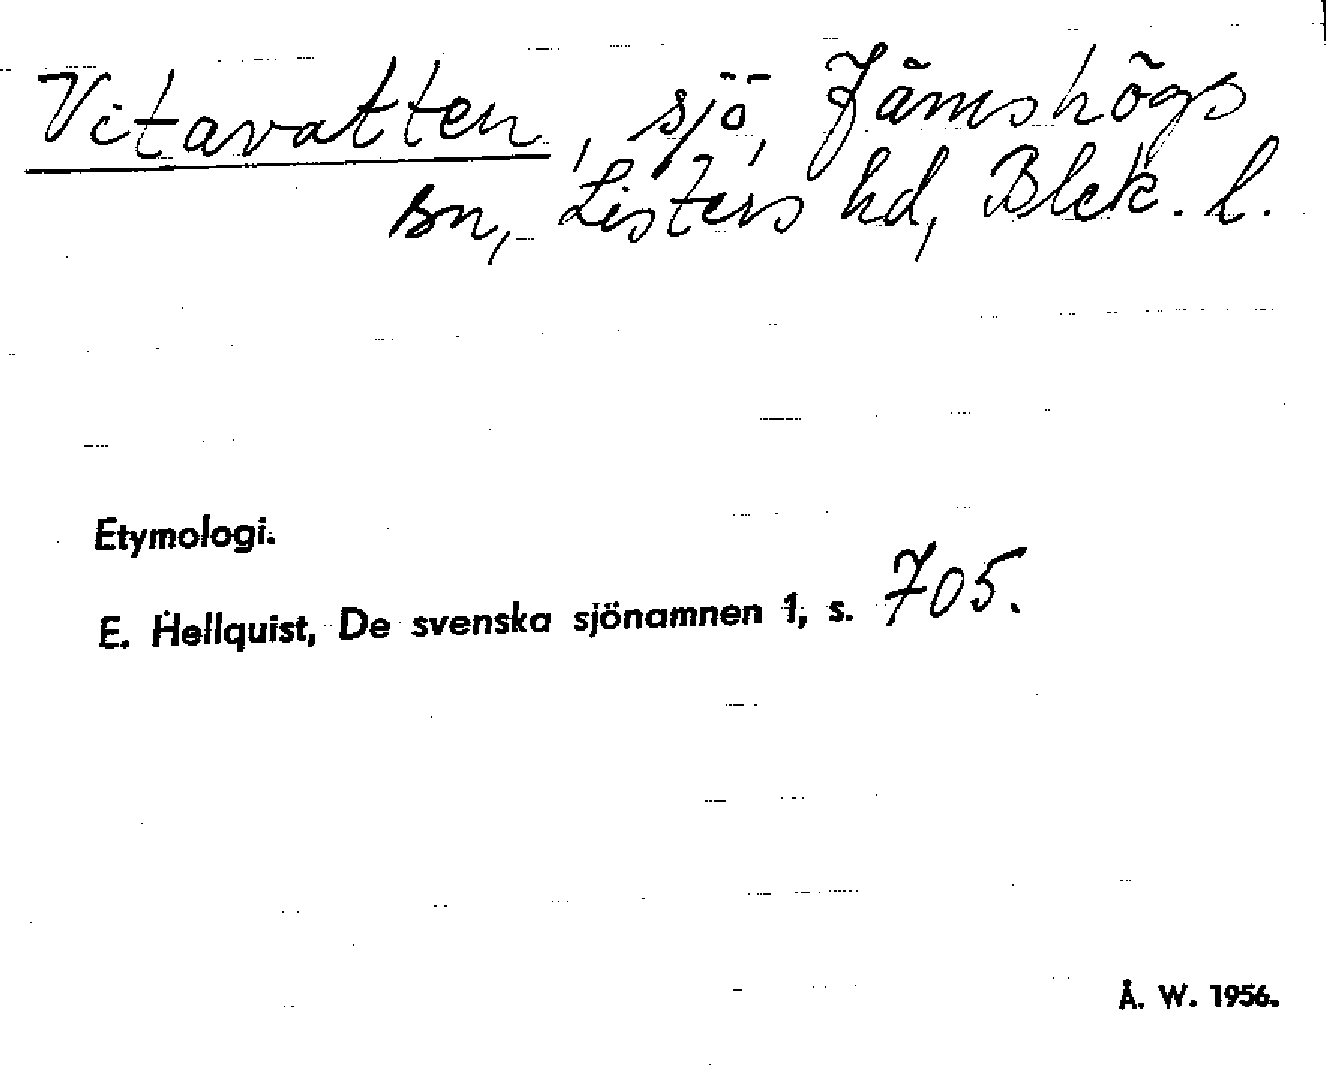 Vitavatten, sjö, Jämshögs
sn, Listers hd, Blek. l.
Etymologi.
E. Hellquist, De svenska sjönamnen 1, s. 705.
Å. W. 1956.